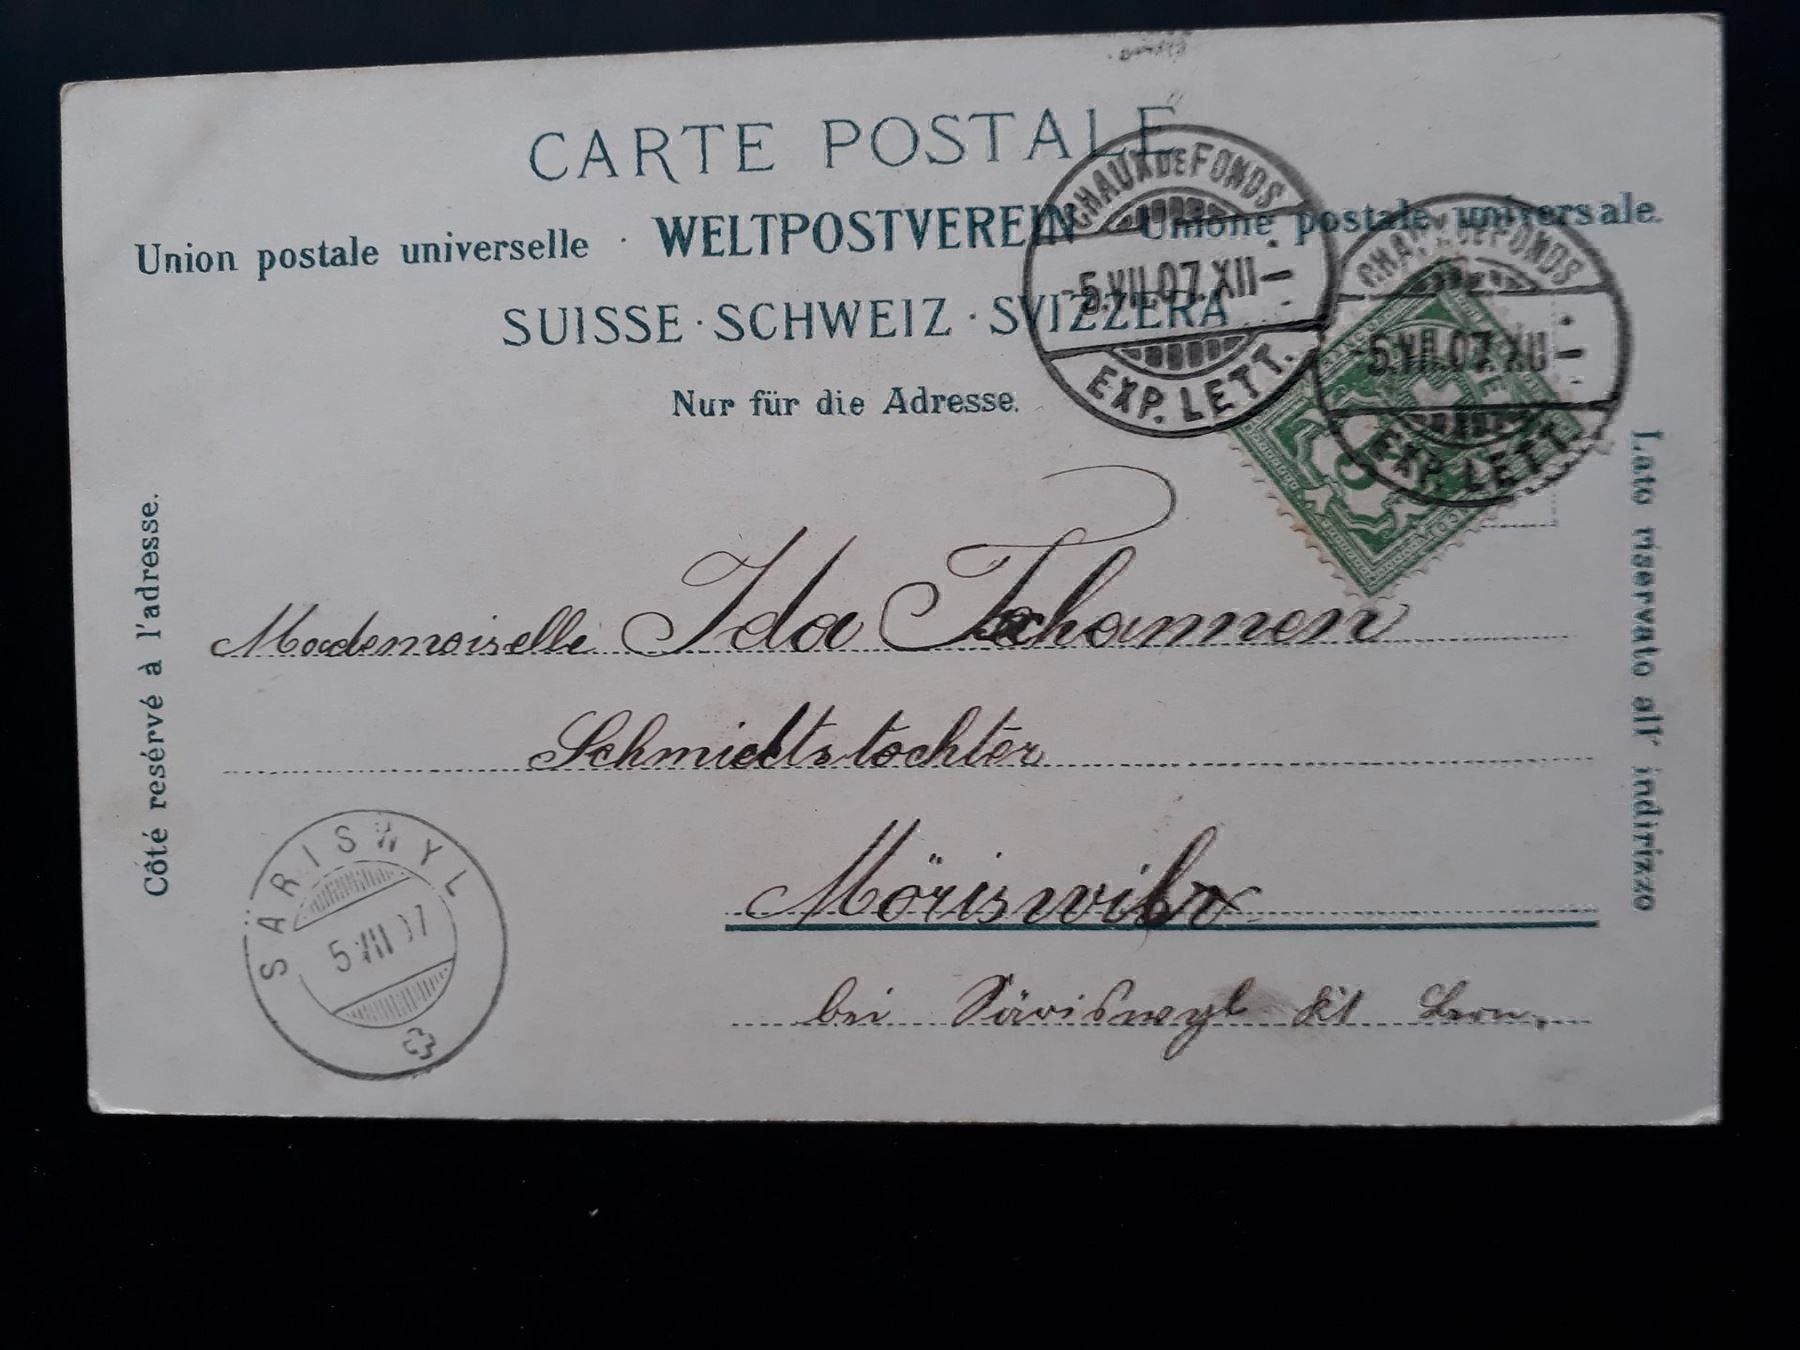 CARTE POSTALE
Union postale universelle · WELTPOSTVEREIN · Unione postale universale.
SUISSE · SCHWEIZ · SVIZZERA
Nur für die Adresse.
CHAUX DE FONDS
-5.VII.07.XII-
EXP. LETT.
CHAUX DE FONDS
-5.VII.07.XII-
EXP. LETT.
5
Côté resérvé à l'adresse.
Lato riservato all' indirizzo
Mademoiselle Ida Tschannen
Schmiedtstochter
Möriswil
bei Säriswyl Kt Bern.
SÄRISWYL
5 VII 07